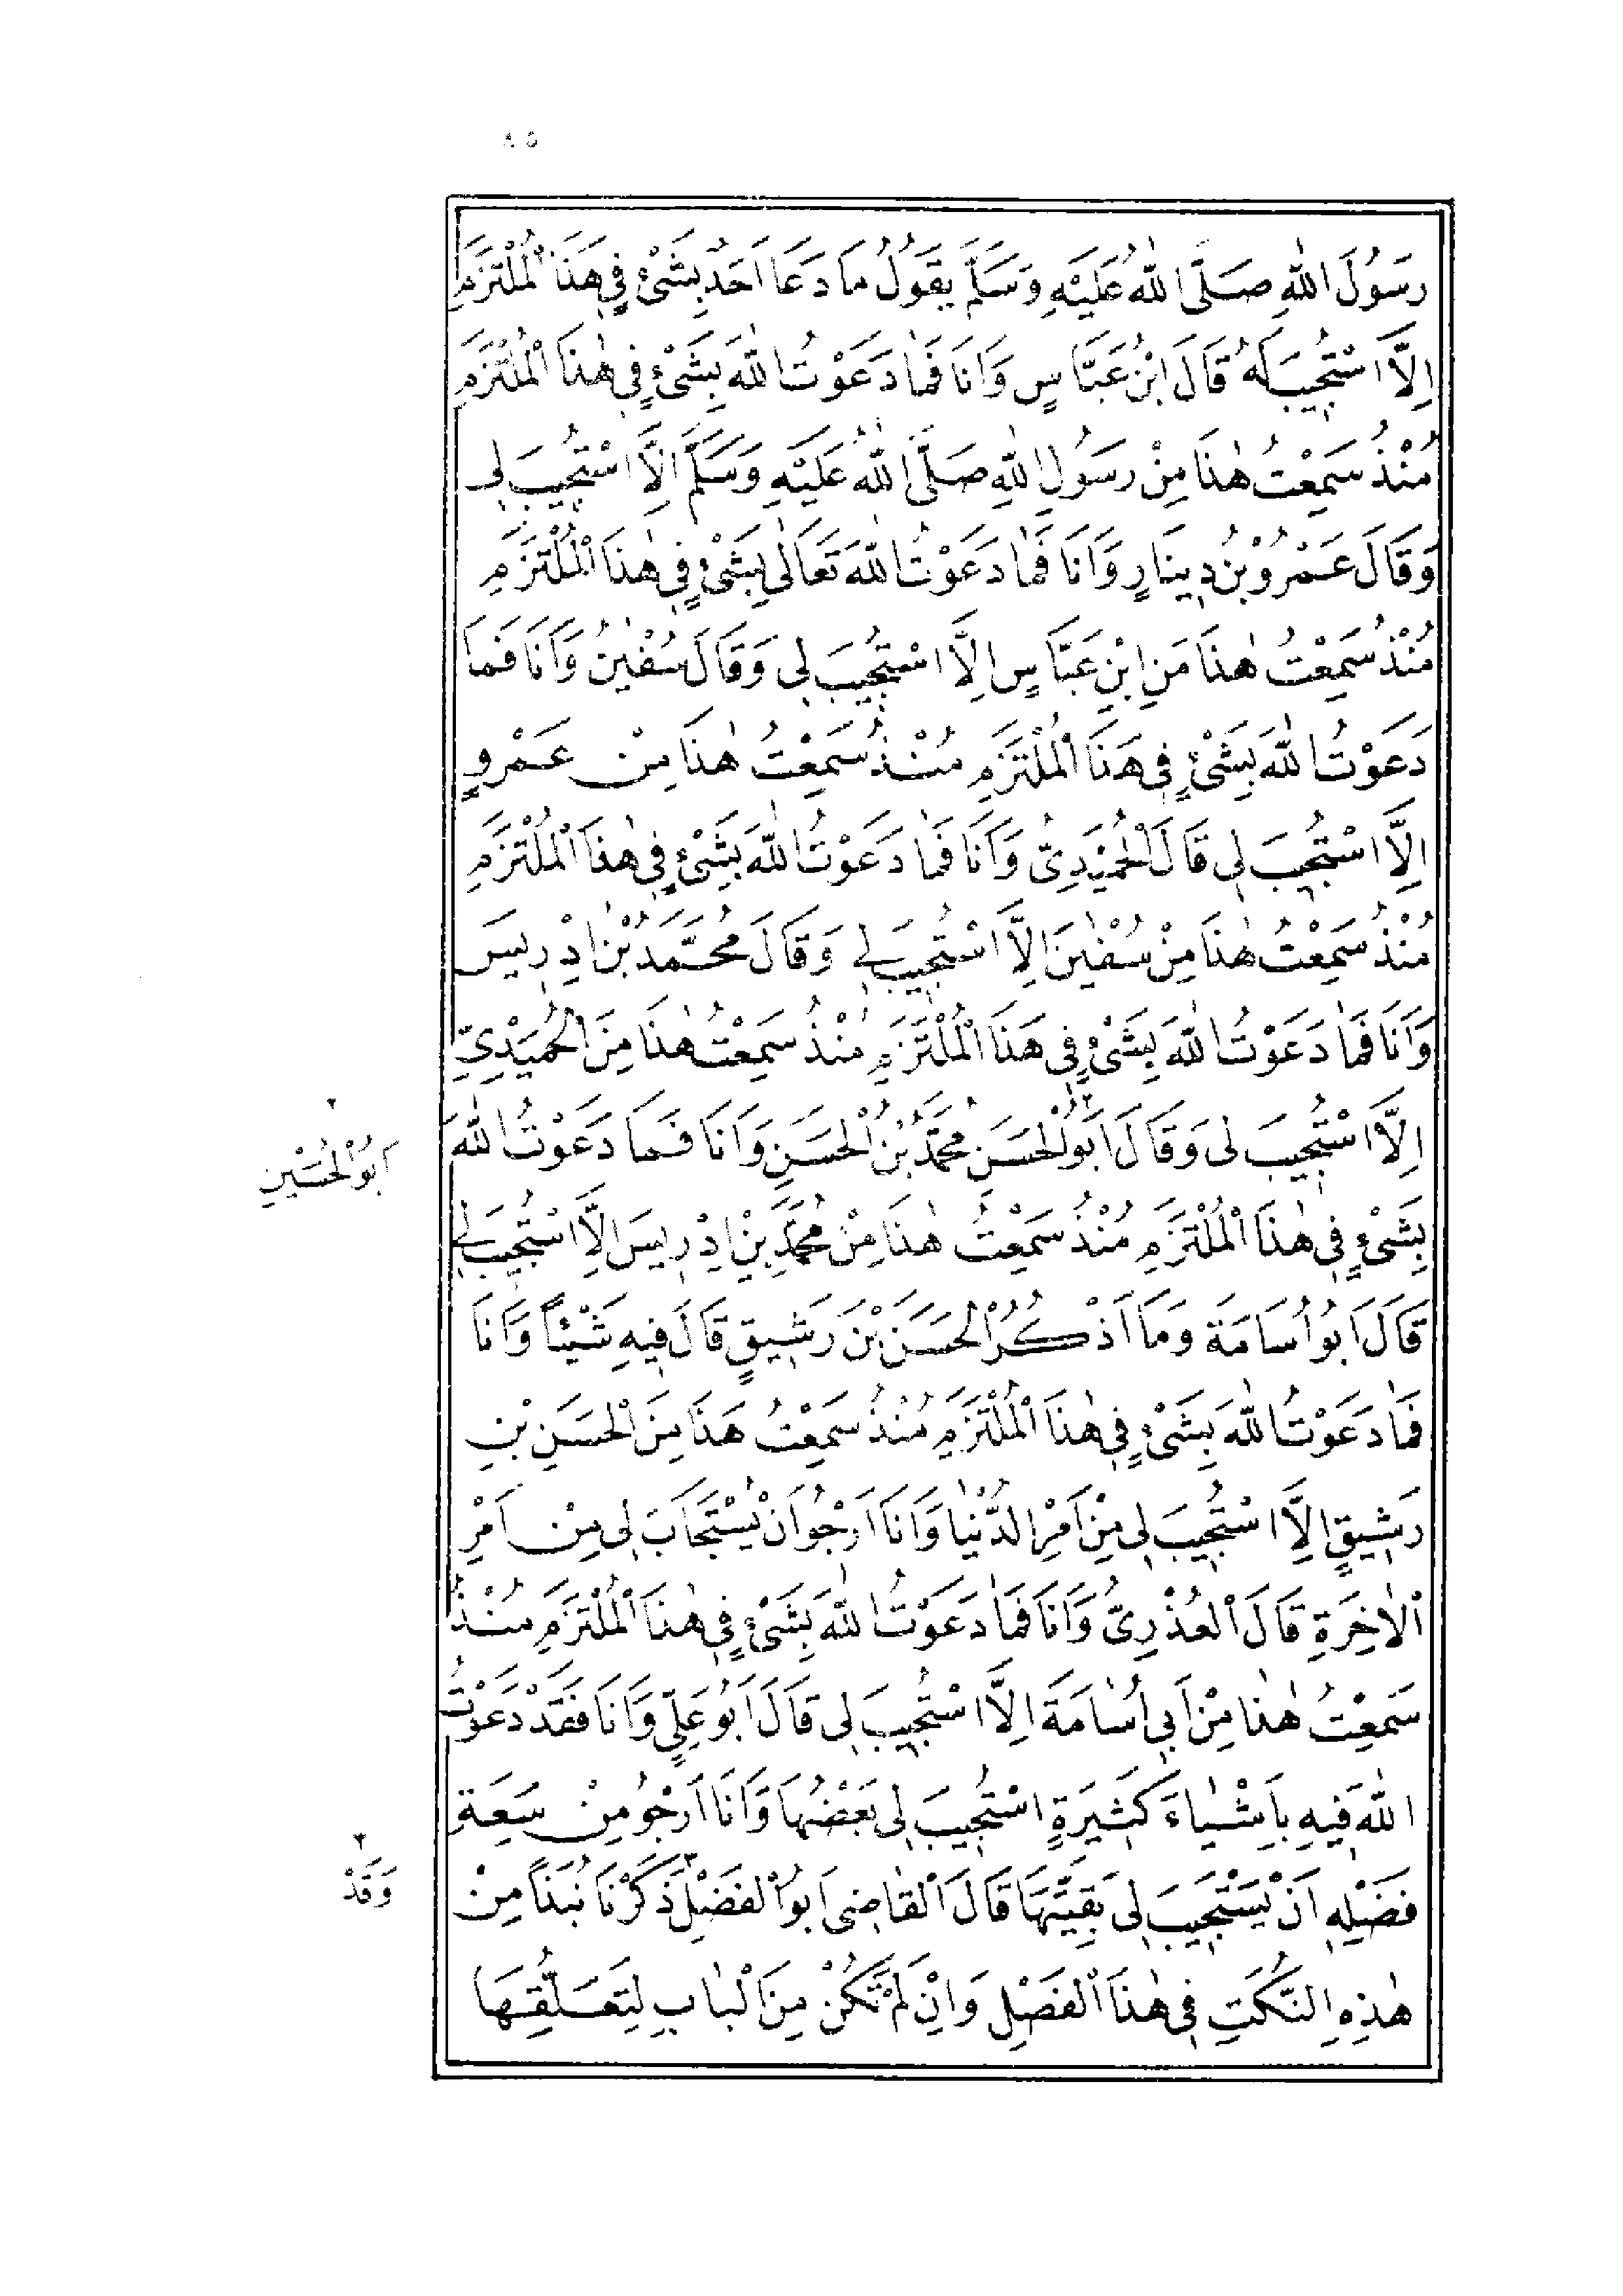 ٩٥
رَسُولَ اللهِ صَلَّى اللهُ عَلَيْهِ وَسَلَّمَ يَقُولُ مَا دَعَا اَحَدٌ بِشَيْءٍ فِي هَذَا الْمُلْتَزَمِ
اِلَّا اسْتُجِيبَ لَهُ قَالَ ابْنُ عَبَّاسٍ وَاَنَا فَمَا دَعَوْتُ اللهَ بِشَيْءٍ فِي هٰذَا الْمُلْتَزَمِ
مُنْذُ سَمِعْتُ هٰذَا مِنْ رَسُولِ اللهِ صَلَّى اللهُ عَلَيْهِ وَسَلَّمَ اِلَّا اسْتُجِيبَ لِى
وَقَالَ عَمْرُو بْنُ دِينَارٍ وَاَنَا فَمَا دَعَوْتُ اللهَ تَعَالٰى بِشَيْءٍ فِي هٰذَا الْمُلْتَزَمِ
مُنْذُ سَمِعْتُ هٰذَا مَنِ ابْنِ عَبَّاسٍ اِلَّا اسْتُجِيبَ لِى وَقَالَ سُفْيٰنُ وَاَنَا فَمَا
دَعَوْتُ اللهَ بِشَيْءٍ فِي هَذَا الْمُلْتَزَمِ مُنْذُ سَمِعْتُ هٰذَا مِنْ عَمْرٍو
اِلَّا اسْتُجِيبَ لِى قَالَ الْحُمَيْدِىُّ وَاَنَا فَمَا دَعَوْتُ اللهَ بِشَيْءٍ فِي هٰذَا الْمُلْتَزَمِ
مُنْذُ سَمِعْتُ هٰذَا مِنْ سُفْيٰنَ اِلَّا اسْتُجِيبَ لِى وَقَالَ مُحَمَّدُ بْنُ اِدْرِيسَ
وَاَنَا فَمَا دَعَوْتُ اللهَ بِشَيْءٍ فِي هَذَا الْمُلْتَزَمِ مُنْذُ سَمِعْتُ هٰذَا مِنَ الْحُمَيْدِىِّ
اِلَّا اسْتُجِيبَ لِى وَقَالَ اَبُو الْحَسَنِ٢ مُحَمَّدُ بْنُ الْحَسَنِ وَاَنَا فَمَا دَعَوْتُ اللهَ
بِشَيْءٍ فِي هٰذَا الْمُلْتَزَمِ مُنْذُ سَمِعْتُ هٰذَا مِنْ مُحَمَّدِ بْنِ اِدْرِيسَ اِلَّا اسْتُجِيبَ لِى
قَالَ اَبُو اُسَامَةَ وَمَا اَذْكُرُ الْحَسَنَ بْنَ رَشِيقٍ قَالَ فِيهِ شَيْئًا وَاَنَا
فَمَا دَعَوْتُ اللهَ بِشَيْءٍ فِي هٰذَا الْمُلْتَزَمِ مُنْذُ سَمِعْتُ هَذَا مِنَ الْحَسَنِ بْنِ
رَشِيقٍ اِلَّا اسْتُجِيبَ لِى مِنْ اَمْرِ الدُّنْيَا وَاَنَا اَرْجُو اَنْ يُسْتَجَابَ لِى مِنْ اَمْرِ
الْاٰخِرَةِ قَالَ الْعُذْرِىُّ وَاَنَا فَمَا دَعَوْتُ اللهَ بِشَيْءٍ فِي هٰذَا الْمُلْتَزَمِ مُنْذُ
سَمِعْتُ هٰذَا مِنْ اَبِى اُسَامَةَ اِلَّا اسْتُجِيبَ لِى قَالَ اَبُو عَلِىٍّ وَاَنَا فَقَدْ دَعَوْتُ
اللهَ فِيهِ بِاَشْيَاءَ كَثِيرَةٍ اسْتُجِيبَ لِى بَعْضُهَا وَاَنَا اَرْجُو مِنْ سَعَةِ
فَضْلِهِ اَنْ يَسْتَجِيبَ لِى بَقِيَّتَهَا قَالَ الْقَاضِى اَبُو الْفَضْلِ٣ ذَكَرْنَا نُبَذًا مِنْ
هٰذِهِ النُّكَتِ فِي هٰذَا الْفَصْلِ وَاِنْ لَمْ تَكُنْ مِنَ الْبَابِ لِتَعَلُّقِهَا
٢
اَبُو الْحُسَيْنِ
٣
وَقَدْ